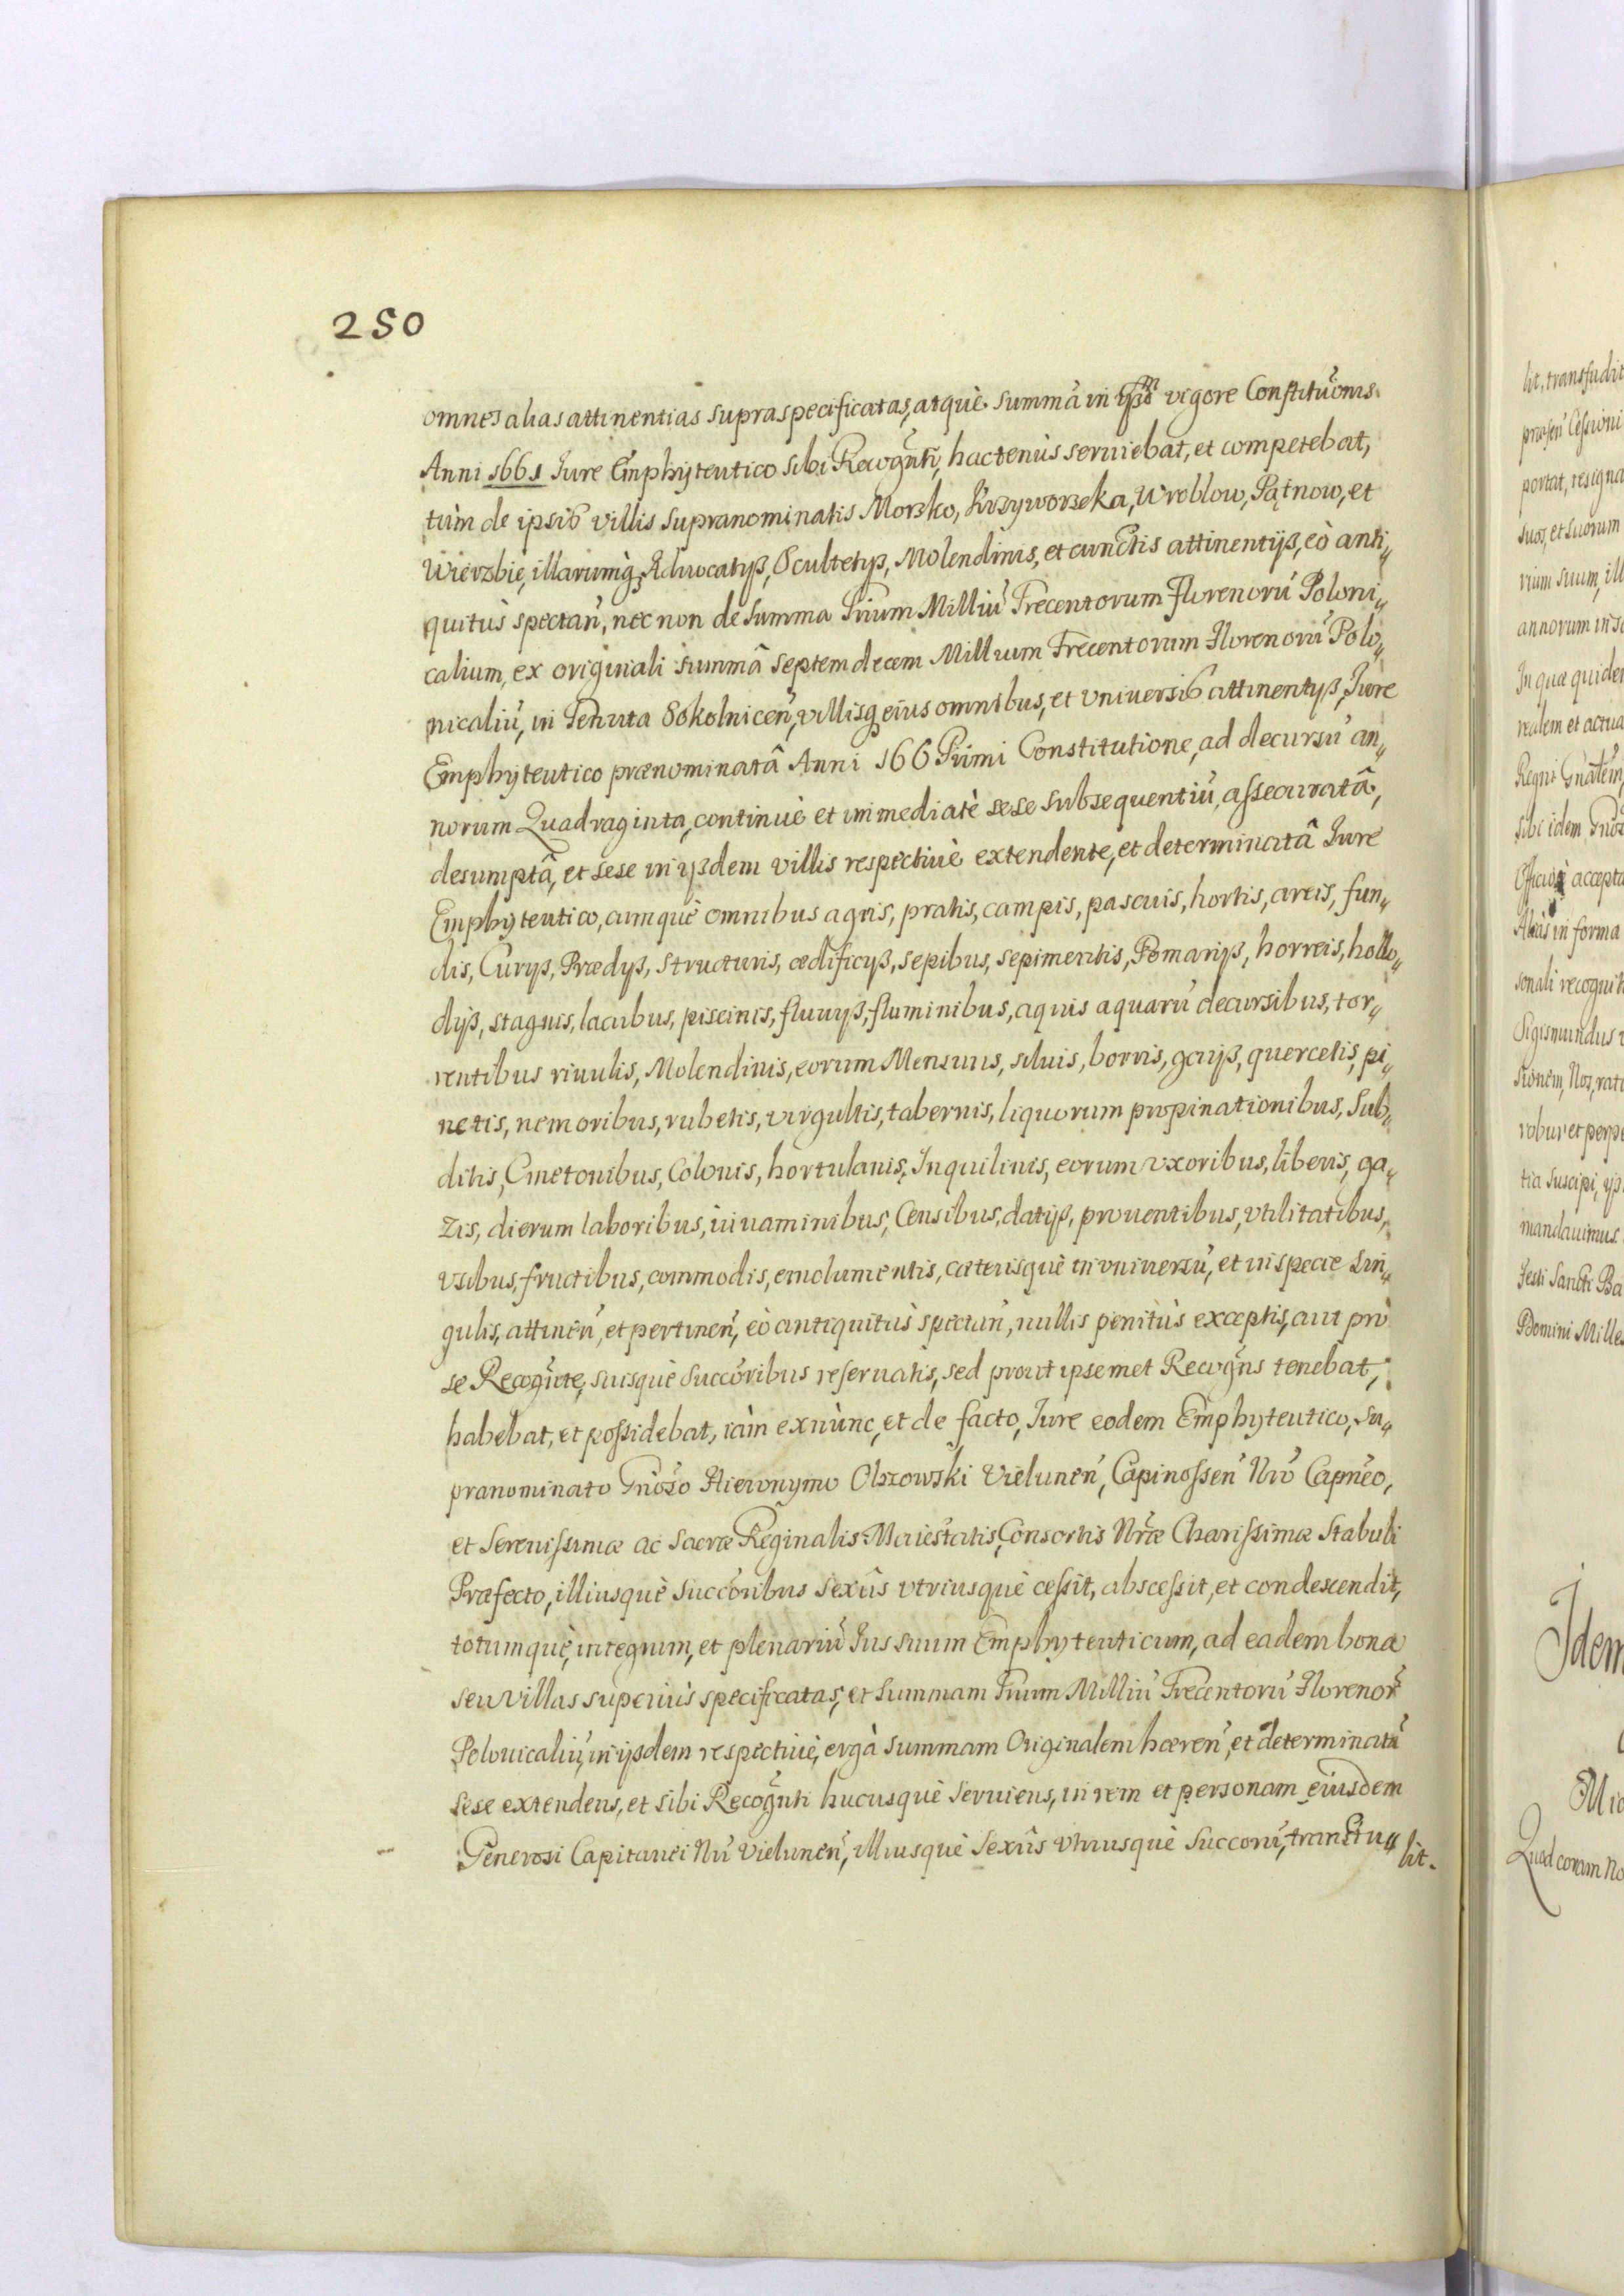 250
omnes alias attinentias supraspecificatas, atquè summã in vigore Constitũonis
Anni 1661 Iure Emphyteutico sibi Recogñti, hactenùs seruiebat, et competebat,
tùm de ipsis villis supranominatis Morsko, Krzyworzeka, Wroblow, Pątnow, et
Wierzbie, illarumq; Aduocatyß, Scultetyß, Molendinis, et cunctis attinentijß, eò anti„
quitùs spectań, nec non de summa Trium Milliũ Trecentorum Florenorũ Poloni„
calium, ex originali summâ septemdecem Millium Trecentorum Florenorũ Polo„
nicaliũ, in Tenuta Sokolniceń, villisq; eius omnibus, et vniversis attinentyß, Iure
Emphyteutico prænominatâ Anni 166 Primi Constitutione, ad decursũ an„
norum Quadraginta, continuè et immediatè sese subsequentiũ, assecuratâ,
desumptâ, et sese in ijsdem villis respectiuè extendente, et determinatâ Iure
Emphyteutico, cumquè omnibus agris, pratis, campis, pascuis, hortis, areis, fun„
dis, Curyß, Prædyß, structuris, ædificyß, sepibus, sepimentis, Pomaryß, horreis, hollo„
dijß, stagnis, lacubus, piscinis, fluuyß, fluminibus, aquis aquarũ decursibus, tor„
rentibus riuulis, Molendinis, eorum Mensuris, siluis, borris, gaijß, quercetis, pi„
netis, nemoribus, rubetis, virgultis, tabernis, liquorum propinationibus, Sub„
ditis, Cmetonibus, Colonis, hortulanis, Inquilinis, eorum vxoribus, liberis, ga„
zis, dierum laboribus, iuuaminibus, Censibus, datijß, prouentibus, vtilitatibus,
vsibus, fructibus, commodis, emolumentis, cæterisquè in vniuersũ, et in specie sin„
gulis, attineń, et pertineń, eò antiquitùs spectań, nullis penitùs exceptis, aut pro
se Recogñte, suisquè succõribus reseruatis, sed prout ipsemet Recogñs tenebat,
habebat, et possidebat, iàm exnùnc, et de facto, Iure eodem Emphyteutico, su„
pranominato Gñoso Hieronymo Olszowski Vieluneń, Capinosseń Nro Capneo,
et Serenissimæ ac Sacræ Reginalis Maiestatis, Consortis Nræ Charissimæ Stabuli
Præfecto, illiusquè succõribus sexûs vtriusquè cessit, abscessit, et condescendit,
totumquè, integrum, et plenariũ Ius suum Emphyteuticum, ad eadem bona
seu villas superiùs specificatas, et summam Trium Milliũ Trecentorũ Florenor̃
Polonicaliũ, in ijsdem respectiuè, ergà summam Originalem hæreń, et determinatã
sese extendens, et sibi Recogñti hucusquè seruiens, in rem et personam eiusdem
Generosi Capitanei Nri Vieluneń, illiusquè sexûs vtriusquè succorũ, transtu„
lit.
lit, transfudit
præseń Cessioni
portat, resigna
suos, et suorum
rium suum, ill
In qua quidem
realem et actua
Regni
sibi idem
accepta
Aliàs in forma
sonali recognit
Sigismundus
sionem, Nos, rat
robur et perpe
tia suscipi
mandauimus.
Festi Sancti Ba
Domini Milles
Idem
Quod coram No